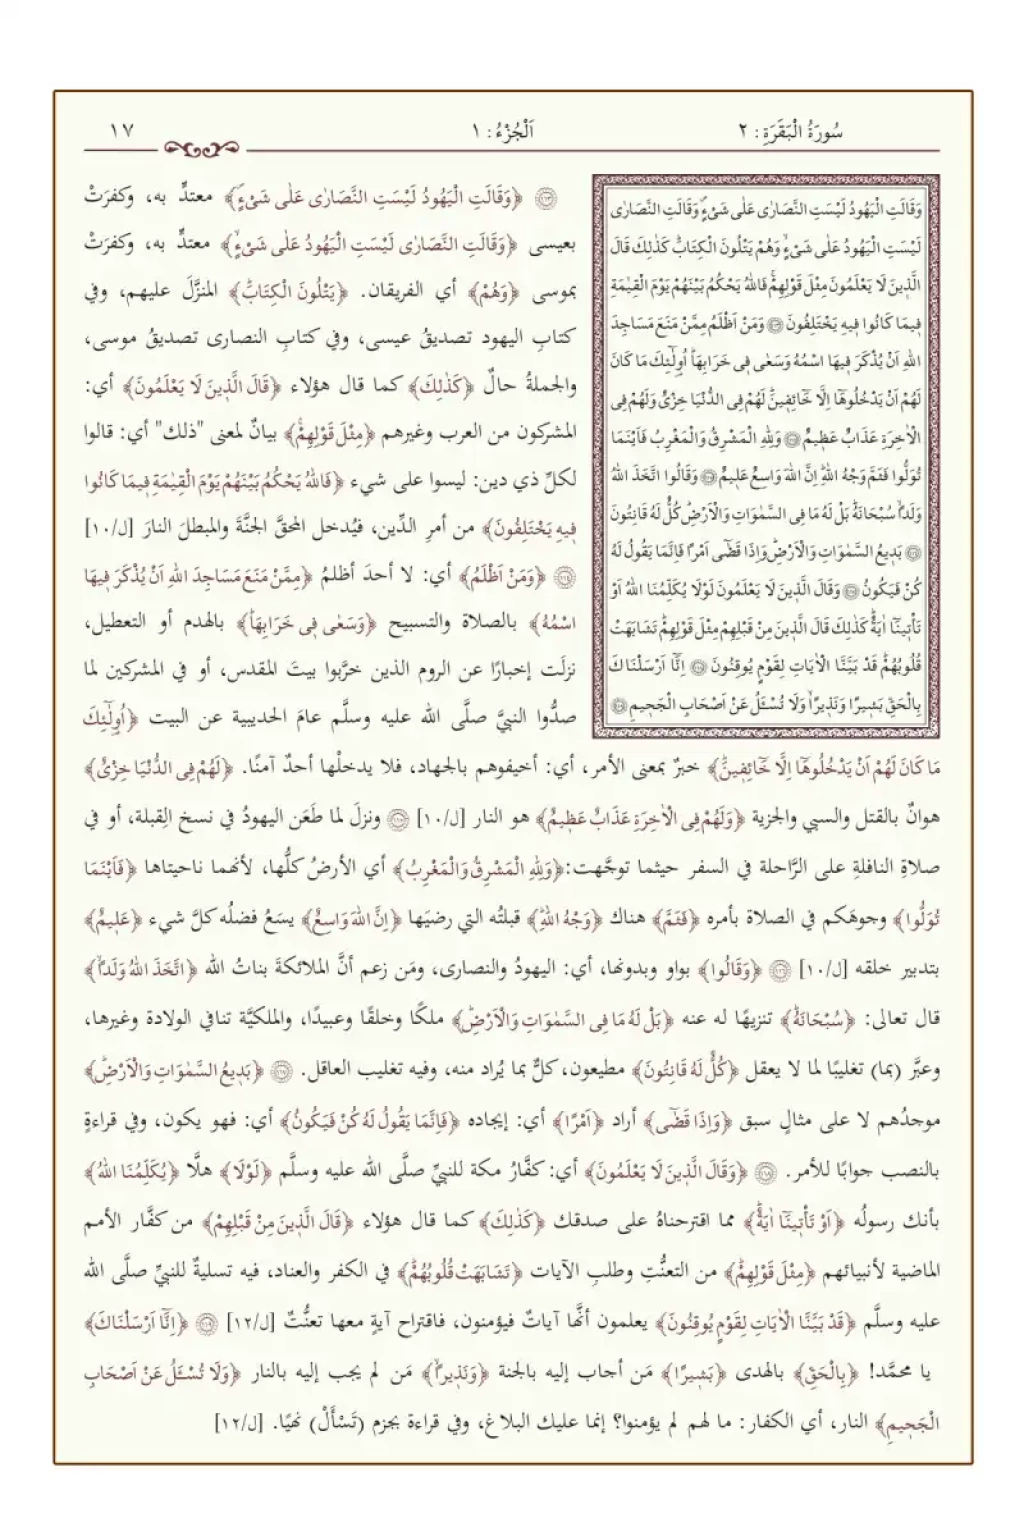 سُورَةُ الْبَقَرَةِ: ٢
اَلْجُزْءُ: ١
١٧
وَقَالَتِ الْيَهُودُ لَيْسَتِ النَّصَارٰى عَلٰى شَىْءٍۖ وَقَالَتِ النَّصَارٰى
لَيْسَتِ الْيَهُودُ عَلٰى شَىْءٍۙ وَهُمْ يَتْلُونَ الْكِتَابَۜ كَذٰلِكَ قَالَ
الَّذِينَ لَا يَعْلَمُونَ مِثْلَ قَوْلِهِمْۚ فَاللّٰهُ يَحْكُمُ بَيْنَهُمْ يَوْمَ الْقِيٰمَةِ
فِيمَا كَانُوا فِيهِ يَخْتَلِفُونَ ﴿١١٣﴾ وَمَنْ اَظْلَمُ مِمَّنْ مَنَعَ مَسَاجِدَ
اللّٰهِ اَنْ يُذْكَرَ فِيهَا اسْمُهُ وَسَعٰى فِى خَرَابِهَاۜ اُو۬لٰٓئِكَ مَا كَانَ
لَهُمْ اَنْ يَدْخُلُوهَٓا اِلَّا خَٓائِفِينَۜ لَهُمْ فِى الدُّنْيَا خِزْىٌ وَلَهُمْ فِى
الْاٰخِرَةِ عَذَابٌ عَظِيمٌ ﴿١١٤﴾ وَلِلّٰهِ الْمَشْرِقُ وَالْمَغْرِبُ فَاَيْنَمَا
تُوَلُّوا فَثَمَّ وَجْهُ اللّٰهِۜ اِنَّ اللّٰهَ وَاسِعٌ عَلِيمٌ ﴿١١٥﴾ وَقَالُوا اتَّخَذَ اللّٰهُ
وَلَدًاۙ سُبْحَانَهُۜ بَلْ لَهُ مَا فِى السَّمٰوَاتِ وَالْاَرْضِۜ كُلٌّ لَهُ قَانِتُونَ
﴿١١٦﴾ بَدِيعُ السَّمٰوَاتِ وَالْاَرْضِۜ وَاِذَا قَضٰٓى اَمْرًا فَاِنَّمَا يَقُولُ لَهُ
كُنْ فَيَكُونُ ﴿١١٧﴾ وَقَالَ الَّذِينَ لَا يَعْلَمُونَ لَوْلَا يُكَلِّمُنَا اللّٰهُ اَوْ
تَأْتِينَٓا اٰيَةٌۜ كَذٰلِكَ قَالَ الَّذِينَ مِنْ قَبْلِهِمْ مِثْلَ قَوْلِهِمْۜ تَشَابَهَتْ
قُلُوبُهُمْۜ قَدْ بَيَّنَّا الْاٰيَاتِ لِقَوْمٍ يُوقِنُونَ ﴿١١٨﴾ اِنَّٓا اَرْسَلْنَاكَ
بِالْحَقِّ بَشِيرًا وَنَذِيرًاۙ وَلَا تُسْـَٔلُ عَنْ اَصْحَابِ الْجَحِيمِ ﴿١١٩﴾
﴿١١٣﴾ ﴿وَقَالَتِ الْيَهُودُ لَيْسَتِ النَّصَارٰى عَلٰى شَىْءٍۖ﴾ معتدٍّ به، وكفرَتْ
بعيسى ﴿وَقَالَتِ النَّصَارٰى لَيْسَتِ الْيَهُودُ عَلٰى شَىْءٍۙ﴾ معتدٍّ به، وكفرَتْ
بموسى ﴿وَهُمْ﴾ أي الفريقان. ﴿يَتْلُونَ الْكِتَابَۜ﴾ المنزَّلَ عليهم، وفي
كتابِ اليهود تصديقُ عيسى، وفي كتابِ النصارى تصديقُ موسى،
والجملةُ حالٌ ﴿كَذٰلِكَ﴾ كما قال هؤلاء ﴿قَالَ الَّذِينَ لَا يَعْلَمُونَ﴾ أي:
المشركون من العرب وغيرهم ﴿مِثْلَ قَوْلِهِمْۚ﴾ بيانٌ لمعنى "ذلك" أي: قالوا
لكلِّ ذي دين: ليسوا على شيء ﴿فَاللّٰهُ يَحْكُمُ بَيْنَهُمْ يَوْمَ الْقِيٰمَةِ فِيمَا كَانُوا
فِيهِ يَخْتَلِفُونَ﴾ من أمرِ الدِّين، فيُدخل المحقَّ الجنَّةَ والمبطلَ النارَ [ل/١٠]
﴿١١٤﴾ ﴿وَمَنْ اَظْلَمُ﴾ أي: لا أحدَ أظلمُ ﴿مِمَّنْ مَنَعَ مَسَاجِدَ اللّٰهِ اَنْ يُذْكَرَ فِيهَا
اسْمُهُ﴾ بالصلاة والتسبيح ﴿وَسَعٰى فِى خَرَابِهَاۜ﴾ بالهدم أو التعطيل،
نزلَت إخبارًا عن الروم الذين خرَّبوا بيتَ المقدس، أو في المشركين لما
صدُّوا النبيَّ صلَّى الله عليه وسلَّم عامَ الحديبية عن البيت ﴿اُو۬لٰٓئِكَ
مَا كَانَ لَهُمْ اَنْ يَدْخُلُوهَٓا اِلَّا خَٓائِفِينَۜ﴾ خبرٌ بمعنى الأمر، أي: أخيفوهم بالجهاد، فلا يدخلْها أحدٌ آمنًا. ﴿لَهُمْ فِى الدُّنْيَا خِزْىٌ﴾
هوانٌ بالقتل والسبي والجزية ﴿وَلَهُمْ فِى الْاٰخِرَةِ عَذَابٌ عَظِيمٌ﴾ هو النار [ل/١٠] ﴿١١٥﴾ ونزلَ لما طَعَن اليهودُ في نسخ القِبلة، أو في
صلاةِ النافلةِ على الرَّاحلة في السفر حيثما توجَّهت: ﴿وَلِلّٰهِ الْمَشْرِقُ وَالْمَغْرِبُ﴾ أي الأرضُ كلُّها، لأنهما ناحيتاها ﴿فَاَيْنَمَا
تُوَلُّوا﴾ وجوهَكم في الصلاة بأمره ﴿فَثَمَّ﴾ هناك ﴿وَجْهُ اللّٰهِۜ﴾ قبلتُه التي رضيَها ﴿اِنَّ اللّٰهَ وَاسِعٌ﴾ يسَعُ فضلُه كلَّ شيء ﴿عَلِيمٌ﴾
بتدبير خلقه [ل/١٠] ﴿١١٦﴾ ﴿وَقَالُوا﴾ بواو وبدونها، أي: اليهودُ والنصارى، ومَن زعم أنَّ الملائكةَ بناتُ الله ﴿اتَّخَذَ اللّٰهُ وَلَدًاۙ﴾
قال تعالى: ﴿سُبْحَانَهُۜ﴾ تنزيهًا له عنه ﴿بَلْ لَهُ مَا فِى السَّمٰوَاتِ وَالْاَرْضِۜ﴾ ملكًا وخلقًا وعبيدًا، والملكيَّة تنافي الولادة وغيرها،
وعبَّر (بما) تغليبًا لما لا يعقل ﴿كُلٌّ لَهُ قَانِتُونَ﴾ مطيعون، كلٌّ بما يُراد منه، وفيه تغليب العاقل. ﴿١١٧﴾ ﴿بَدِيعُ السَّمٰوَاتِ وَالْاَرْضِۜ﴾
موجدُهم لا على مثالٍ سبق ﴿وَاِذَا قَضٰٓى﴾ أراد ﴿اَمْرًا﴾ أي: إيجاده ﴿فَاِنَّمَا يَقُولُ لَهُ كُنْ فَيَكُونُ﴾ أي: فهو يكون، وفي قراءةٍ
بالنصب جوابًا للأمر. ﴿١١٨﴾ ﴿وَقَالَ الَّذِينَ لَا يَعْلَمُونَ﴾ أي: كفَّارُ مكة للنبيِّ صلَّى الله عليه وسلَّم ﴿لَوْلَا﴾ هلَّا ﴿يُكَلِّمُنَا اللّٰهُ﴾
بأنك رسولُه ﴿اَوْ تَأْتِينَٓا اٰيَةٌۜ﴾ مما اقترحناهُ على صدقك ﴿كَذٰلِكَ﴾ كما قال هؤلاء ﴿قَالَ الَّذِينَ مِنْ قَبْلِهِمْ﴾ من كفَّار الأمم
الماضية لأنبيائهم ﴿مِثْلَ قَوْلِهِمْۜ﴾ من التعنُّتِ وطلبِ الآيات ﴿تَشَابَهَتْ قُلُوبُهُمْۜ﴾ في الكفر والعناد، فيه تسليةٌ للنبيِّ صلَّى الله
عليه وسلَّم ﴿قَدْ بَيَّنَّا الْاٰيَاتِ لِقَوْمٍ يُوقِنُونَ﴾ يعلمون أنَّها آياتٌ فيؤمنون، فاقتراح آيةٍ معها تعنُّتٌ [ل/١٢] ﴿١١٩﴾ ﴿اِنَّٓا اَرْسَلْنَاكَ﴾
يا محمَّد! ﴿بِالْحَقِّ﴾ بالهدى ﴿بَشِيرًا﴾ مَن أجاب إليه بالجنة ﴿وَنَذِيرًاۙ﴾ مَن لم يجب إليه بالنار ﴿وَلَا تُسْـَٔلُ عَنْ اَصْحَابِ
الْجَحِيمِ﴾ النار، أي الكفار: ما لهم لم يؤمنوا؟ إنما عليك البلاغ، وفي قراءة بجزم (تَسْأَلْ) نهيًا. [ل/١٢]